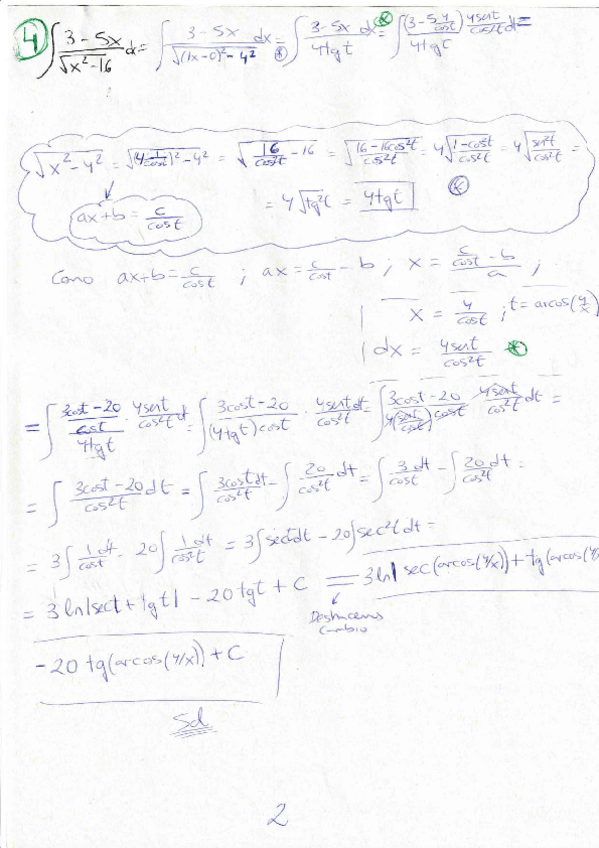 4 ∫ (3 - 5x)/√(x² - 16) dx = ∫ (3 - 5x)/√((1x - 0)² - 4²) dx = ∫ (3 - 5x)/(4 tg t) dx = ∫ (3 - 5 4/cos t)/(4 tg t) · (4 sen t)/(cos² t) dt =
√(x² - 4²) = √((4 1/cos t)² - 4²) = √(16/cos² t - 16) = √((16 - 16 cos² t)/cos² t) = 4√((1 - cos² t)/cos² t) = 4√(sen² t/cos² t) =
ax + b = c/cos t
= 4√(tg² t) = 4 tg t
Como ax + b = c/cos t ; ax = c/cos t - b ; x = (c/cos t - b)/a ;
x = 4/cos t ; t = arcos(4/x)
dx = (4 sen t)/(cos² t)
= ∫ ((3 cos t - 20)/cos t)/(4 tg t) · (4 sen t)/(cos² t) dt = ∫ (3 cos t - 20)/((4 tg t) cos t) · (4 sen t dt)/(cos² t) = ∫ (3 cos t - 20)/(4 (sen t/cos t) cos t) · (4 sen t)/(cos² t) dt =
= ∫ (3 cos t - 20)/(cos² t) dt = ∫ (3 cos t dt)/(cos² t) - ∫ 20/(cos² t) dt = ∫ (3 dt)/(cos t) - ∫ (20 dt)/(cos² t) =
= 3 ∫ (1 dt)/(cos t) - 20 ∫ (1 dt)/(cos² t) = 3 ∫ sec t dt - 20 ∫ sec² t dt =
= 3 ln|sec t + tg t| - 20 tg t + C = 3 ln| sec(arcos(4/x)) + tg(arcos(4/x
Deshacemos
cambio
- 20 tg(arcos(4/x)) + C
Sol
2